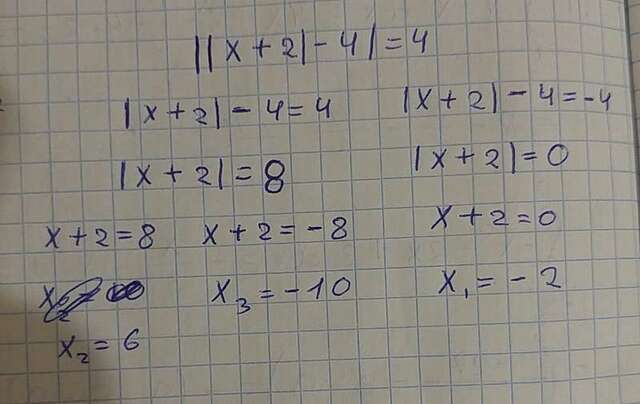 ||x + 2| - 4| = 4
|x + 2| - 4 = 4 |x + 2| - 4 = -4
|x + 2| = 8 |x + 2| = 0
x + 2 = 8 x + 2 = -8 x + 2 = 0
x₃ = -10 x₁ = -2
x₂ = 6